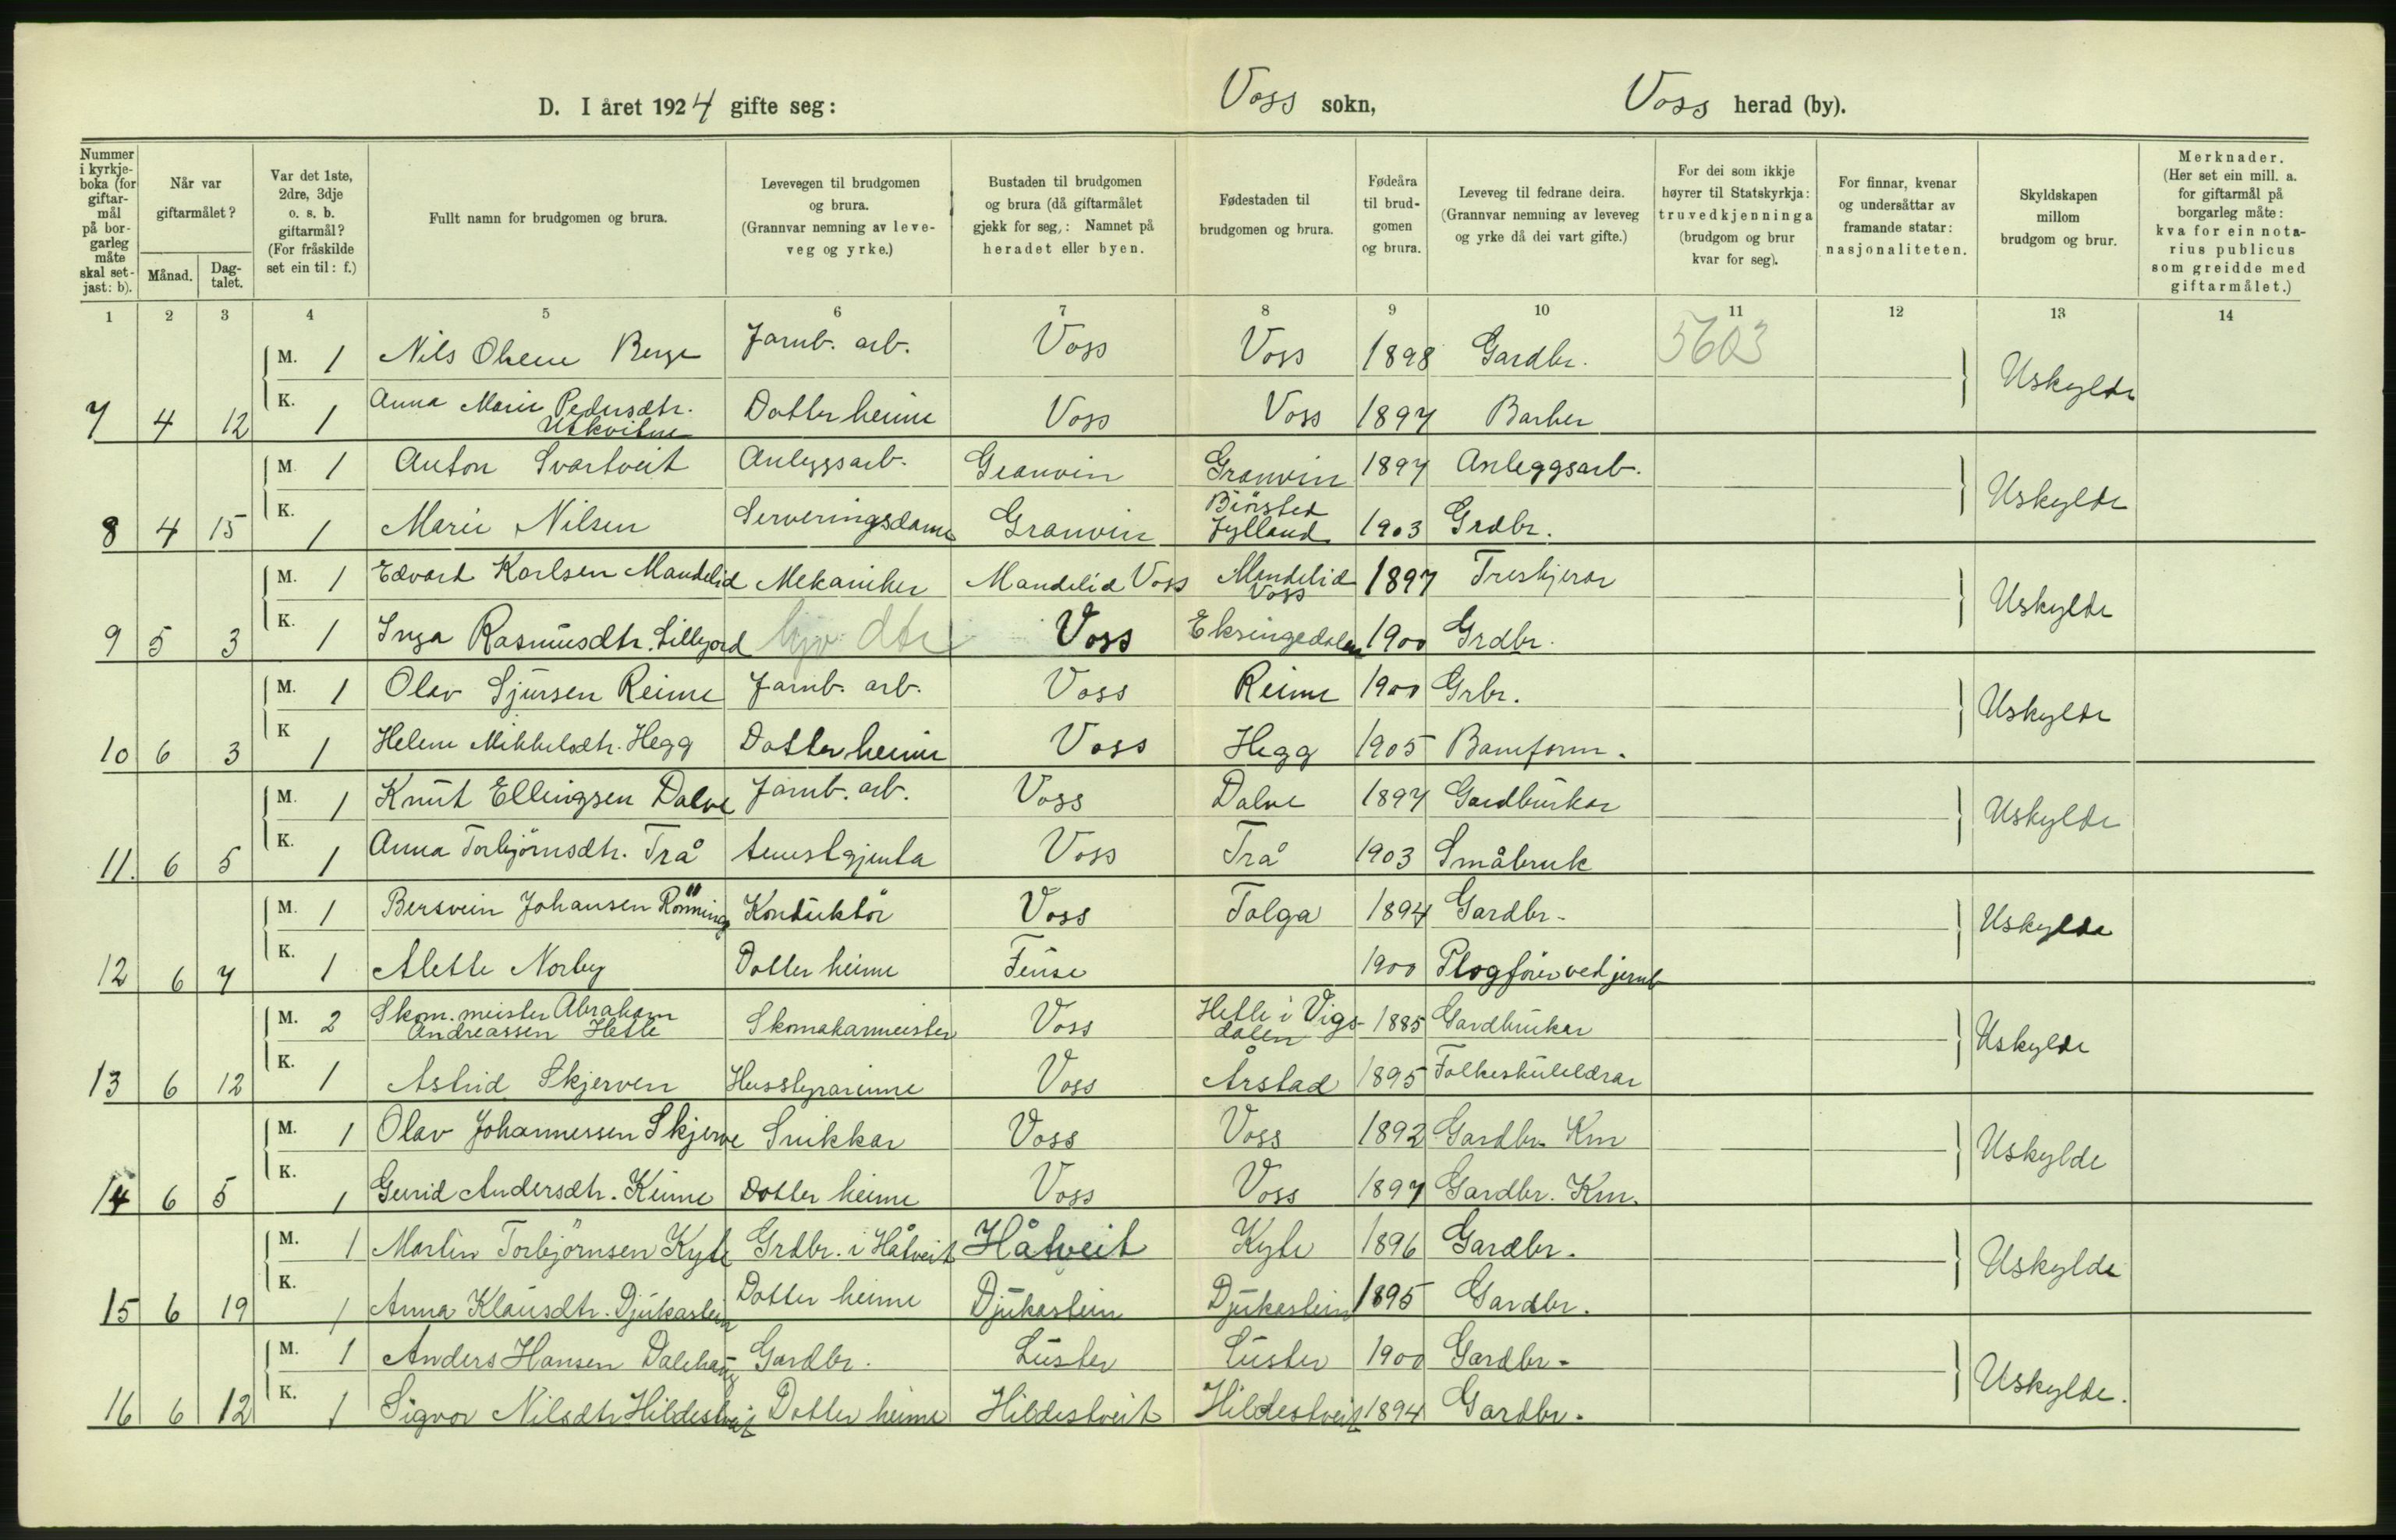 D. I året 1924 gifte seg:
Voss sokn,
Voss herad (by).
Nummer i kyrkjeboka (for giftarmål på borgarleg måte skal setjast: b).
Når var giftarmålet?
Månad.
Dagtalet.
Var det 1ste, 2dre, 3dje o. s. b. giftarmål? (For fråskilde set ein til: f.)
Fullt namn for brudgomen og brura.
Levevegen til brudgomen og brura. (Grannvar nemning av leveveg og yrke.)
Bustaden til brudgomen og brura (då giftarmålet gjekk for seg,: Namnet på heradet eller byen.
Fødestaden til brudgomen og brura.
Fødeåra til brudgomen og brura.
Leveveg til fedrane deira. (Grannvar nemning av leveveg og yrke då dei vart gifte.)
For dei som ikkje høyrer til Statskyrkja: truvedkjenninga (brudgom og brur kvar for seg).
For finnar, kvenar og undersåttar av framande statar: nasjonaliteten.
Skyldskapen millom brudgom og brur.
Merknader. (Her set ein mill. a. for giftarmål på borgarleg måte: kva for ein notarius publicus som greidde med giftarmålet.)
1 2 3 4 5 6 7 8 9 10 11 12 13 14
M. 1 Nils Olsen Berge Jarnb. arb. Voss Voss 1898 Gardbr. 5603
7 4 12 K. 1 Anna Marie Pedersdtr. Utkvitne Dotter heime Voss Voss 1897 Barber Uskylde
M. 1 Anton Svartveit Anleggsarb. Granvin Granvin 1897 Anleggsarb.
8 4 15 K. 1 Marie Nilsen Serveringsdame Granvin Jylland 1903 Grdbr. Uskylde
M. 1 Edvard Karlsen Mandelid Mekaniker Mandelid Voss Mandelid Voss 1897 Treskjerar
9 5 3 K. 1 Inga Rasmusdtr. Lillejord hjv. dtr Voss Eksingedalen 1900 Grdbr. Uskylde
M. 1 Olav Sjursen Reime Jarnb. arb. Voss Reime 1900 Grbr.
10 6 3 K 1 Helene Mikkelsdtr. Hegg Dotter heime Voss Hegg 1905 Baneform. Uskylde
M. 1 Knut Ellingsen Dalve Jarnb. arb. Voss Dalve 1897 Gardbrukar
11. 6 5 K. 1 Anna Torbjörnsdtr. Trå tenestgjenta Voss Trå 1903 Småbruk Uskylde
M. 1 Bersvein Johansen Rönning Konduktör Voss Tolga 1894 Gardbr.
12 6 7 K. 1 Alette Norby Dotter heime Finse 1900 Plogförer ved jernb Uskylde
M. 2 Skom. meister Abraham Andreassen Hetle Skomakarmeister Voss Hetle i Vigsdalen 1885 Gardbrukar
13 6 12 K. 1 Astrid Skjerven Husstyrarinne Voss Årstad 1895 Folkeskulelærar Uskylde
M. 1 Olav Johannessen Skjerve Snikkar Voss Voss 1892 Gardbr. Km
14 6 5 K. 1 Gurid Andersdtr. Kinne Dotter heime Voss Voss 1897 Gardbr. Km. Uskylde
M. 1 Martin Torbjörnsen Kyte Grdbr. i Håtveit Håtveit Kyte 1896 Gardbr.
15 6 19 K. 1 Anna Klausdtr. Djukastein Dotter heime Djukastein Djukastein 1895 Gardbr. Uskylde
M. 1 Anders Hansen Dalehaug Gardbr. Luster Luster 1900 Gardbr.
16 6 12 K. 1 Sigvor Nilsdtr Hildestveit Dotter heime Hildestveit Hildestveit 1894 Gardbr. Uskylde.